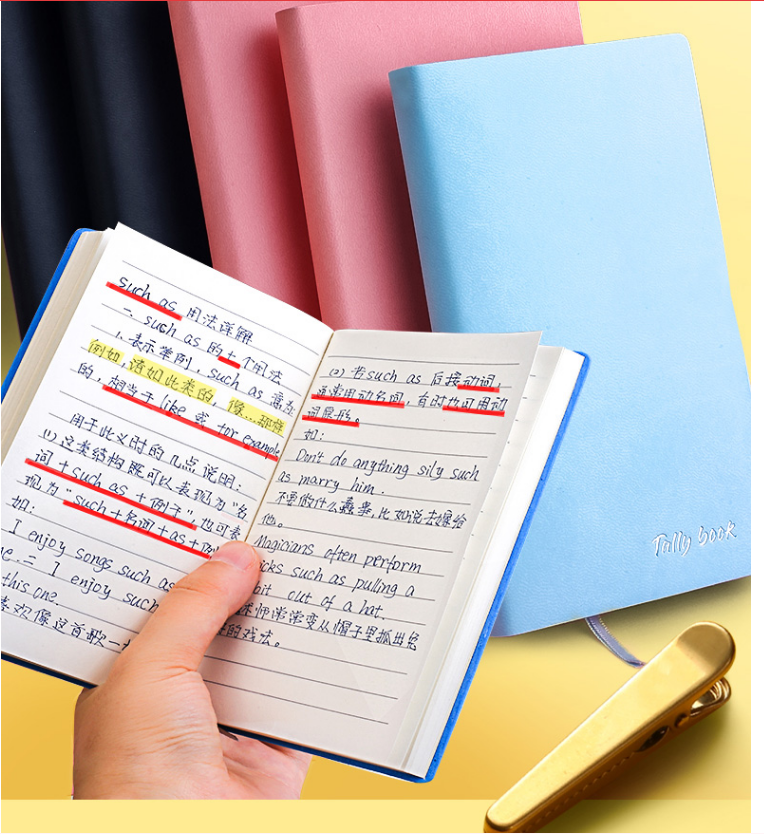 such as 用法详解
一、such as 的十个用法
1. 表示举例, such as 意为
例如, 诸如此类的, 像...那样
的, 相当于 like 或 for example
用于此义时的几点说明:
(1) 这类结构既可以表现为"名
词+such as+例子", 也可表
现为"such+名词+as+例
如:
I enjoy songs such as
one. = I enjoy such
this one.
喜欢像这首歌一
(2) 若such as 后接动词,
通常用动名词, 有时也可用动
词原形。
如:
Don't do anything sily such
as marry him.
不要做什么蠢事, 比如说去嫁给
他。
Magicians often perform
icks such as pulling a
bit out of a hat.
术师常常变从帽子里抓出兔
的戏法。
Tally book